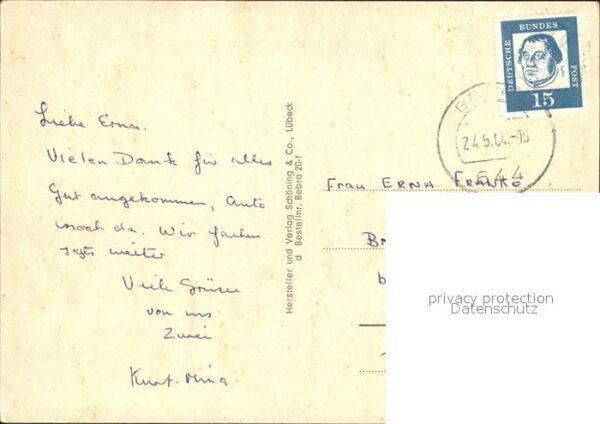 Liebe Erna.
Vielen Dank für alles
Gut angekommen, Auto
noch da. Wir fahren
jetzt weiter
Viele Grüsse
von uns
Zwei
Kurt.
Hersteller und Verlag Schöning & Co., Lübeck
d Bestellnr. Bebra 20-f
DEUTSCHE BUNDES POST
15
24.5.64.-18
544
Frau ERNA
privacy protection
Datenschutz